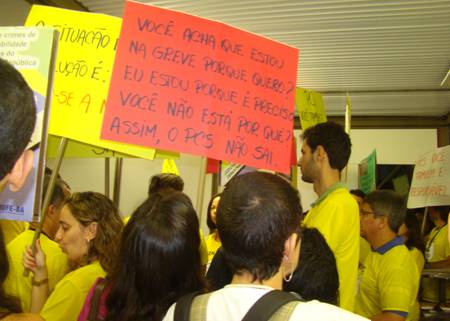 VOCÊ ACHA QUE ESTOU
NA GREVE PORQUE QUERO?
EU ESTOU PORQUE É PRECISO
VOCÊ NÃO ESTÁ POR QUE?
ASSIM, O PCS NÃO SAI.
SITUAÇÃO
LUÇÃO É:
-SE A
crimes de
bilidade
do
República
RESPONSÁVEL